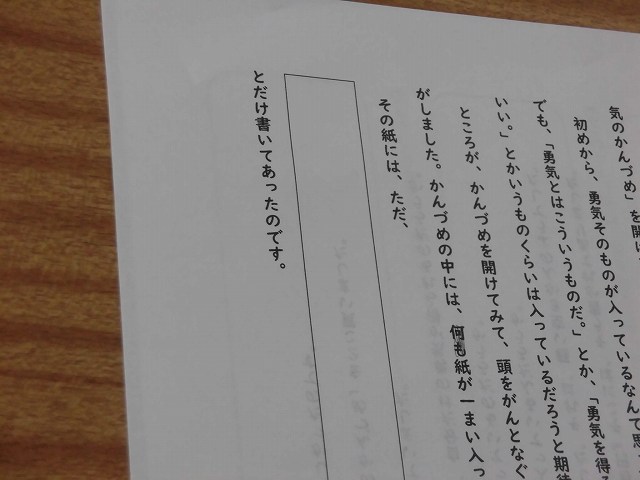 気のかんづめ」を開け
初めから、勇気そのものが入っているなんて思
でも、「勇気とはこういうものだ。」とか、「勇気を得る
いい。」とかいうものくらいは入っているだろうと期待
ところが、かんづめを開けてみて、頭をがんとなぐ
がしました。かんづめの中には、何も紙が一まい入っ
その紙には、ただ、
とだけ書いてあったのです。